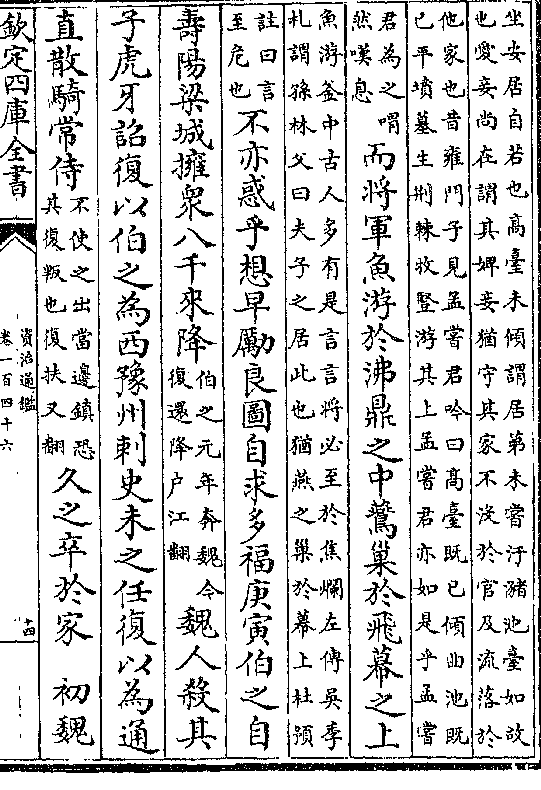 坐安居自若也高臺未傾謂居第未嘗汙豬池臺如故
也愛妾尚在謂其婢妾猶守其家不沒於官及流落於
他家也昔雍門子見孟嘗君吟曰髙臺既已傾曲池既
已平墳墓生荆棘牧豎游其上孟嘗君亦如是乎孟嘗
君為之喟
然嘆息
而將軍魚游於沸鼎之中鷰巢於飛幕之上
魚游釜中古人多有是言言將必至於焦爛左傳吳季
札謂孫林父曰夫子之居此也猶燕之巢於幕上杜預
註曰言
至危也
不亦惑乎想早勵良圖自求多福庚寅伯之自
壽陽梁城擁衆八千來降
伯之元年奔魏今
復還降户江翻
魏人殺其
子虎牙詔復以伯之為西豫州刺史未之任復以為通
直散騎常侍
不使之出當邊鎮恐
其復叛也復扶又翻
久之卒於家 初魏
欽定四庫全書
資治通鑑
卷一百四十六
十四